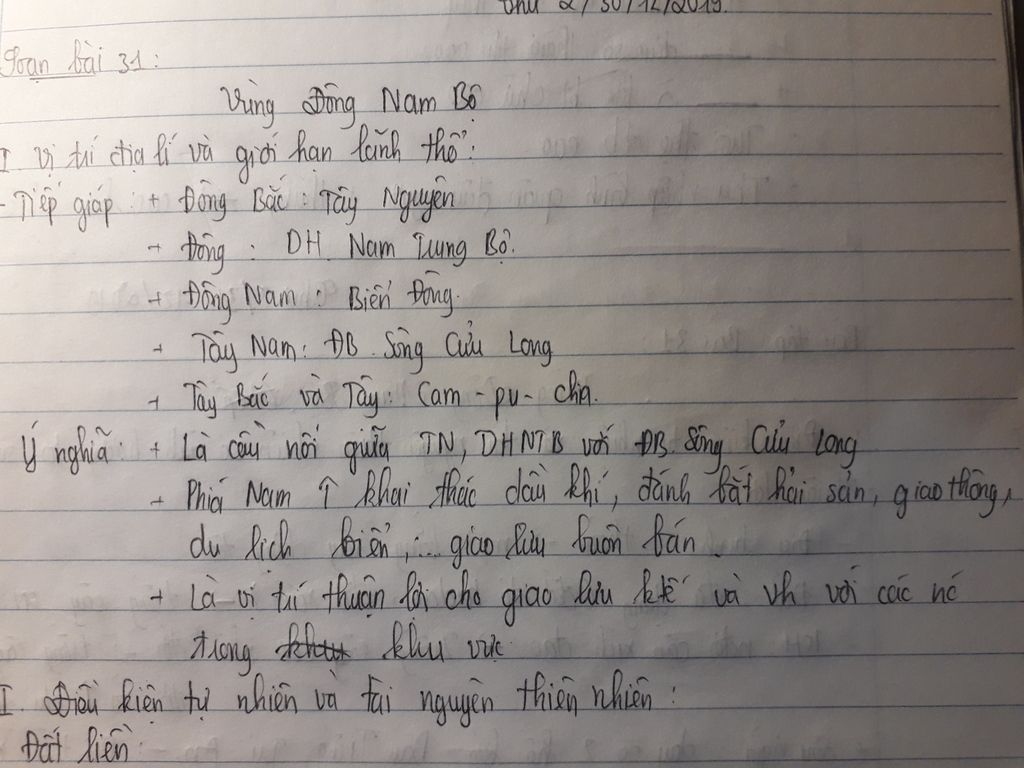 thứ 2/30/12/2019.
Soạn bài 31:
Vùng Đông Nam Bộ
I Vị trí địa lí và giới hạn lãnh thổ:
- Tiếp giáp: + Đông Bắc: Tây Nguyên
+ Đông: DH Nam Trung Bộ.
+ Đông Nam: Biển Đông.
+ Tây Nam: ĐB. Sông Cửu Long
+ Tây Bắc và Tây: Cam-pu-chia.
Ý nghĩa: + Là cầu nối giữa TN, DHNTB với ĐB. Sông Cửu Long
+ Phía Nam ↑ khai thác dầu khí, đánh bắt hải sản, giao thông,
du lịch biển,... giao lưu buôn bán.
+ Là vị trí thuận lợi cho giao lưu ktế và vh với các nc
trong khu vực
I. Điều kiện tự nhiên và tài nguyên thiên nhiên:
Đất liền: